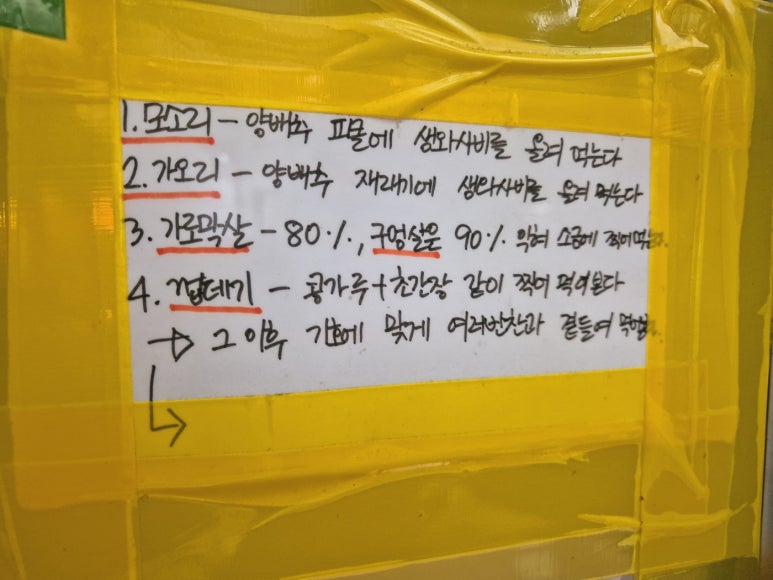 1. 모소리 - 양배추 피믈에 생와사비를 올려 먹는다
2. 가오리 - 양배추 재래기에 생와사비를 올려 먹는다
3. 가로막살 - 80%, 구멍살은 90% 익혀 소금에 찍어먹는
4. 껍데기 - 콩가루+초간장 같이 찍어 먹어본다
→ 그 이후 기호에 맞게 여러반찬과 곁들여